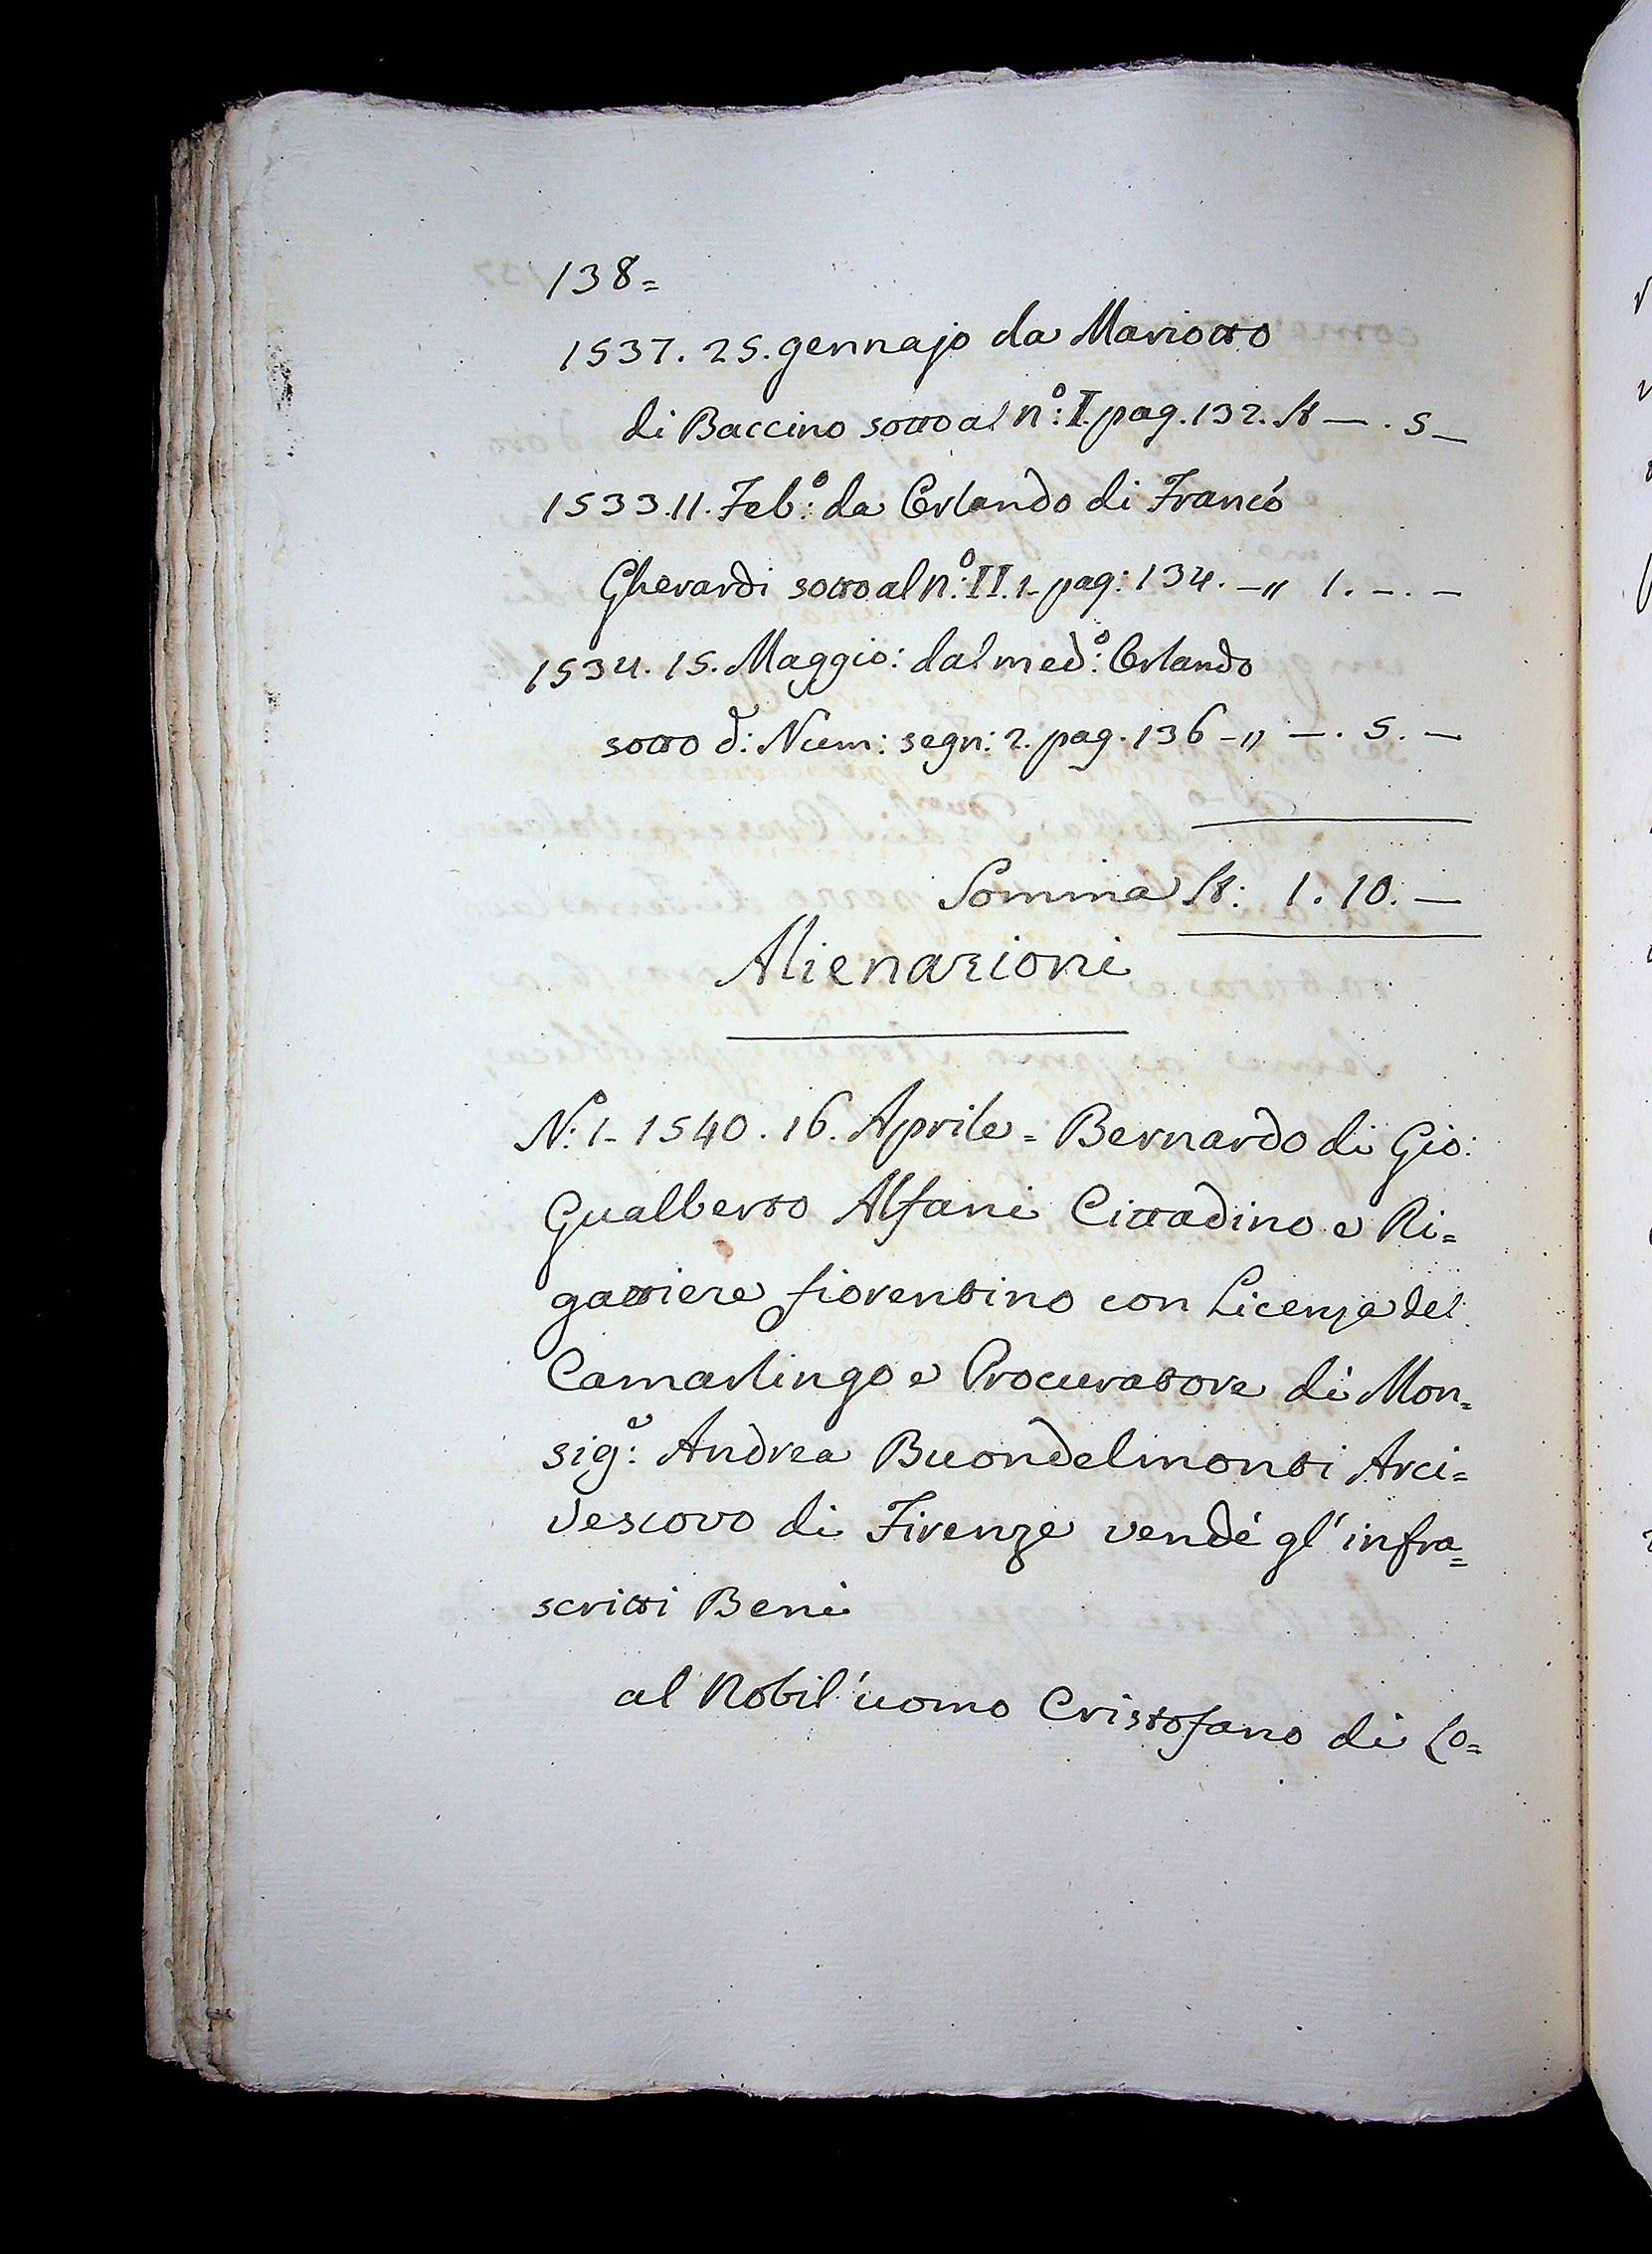 138=
1537. 25. gennajo da Mariotto
di Baccino sotto al n.º I. pag. 132. St — . 5 —
1533. 11. Feb.º da Orlando di Franc.º
Gherardi sotto al n.º II. 1. pag: 134. —" 1. —. —
1534. 15. Maggio: dal med.º Orlando
sotto d: Num: segn: 2. pag. 136 —" —. 5. —
Somma St: 1. 10. —
Alienazioni
N.º 1. 1540. 16. Aprile = Bernardo di Gio:
Gualberto Alfani Cittadino e Ri=
gattiere fiorentino con Licenza del
Camarlingo e Procuratore di Mon=
sig.e Andrea Buondelmonti Arci=
vescovo di Firenze vendé gl'infra=
scritti Beni
al Nobil'uomo Cristofano di Lo=